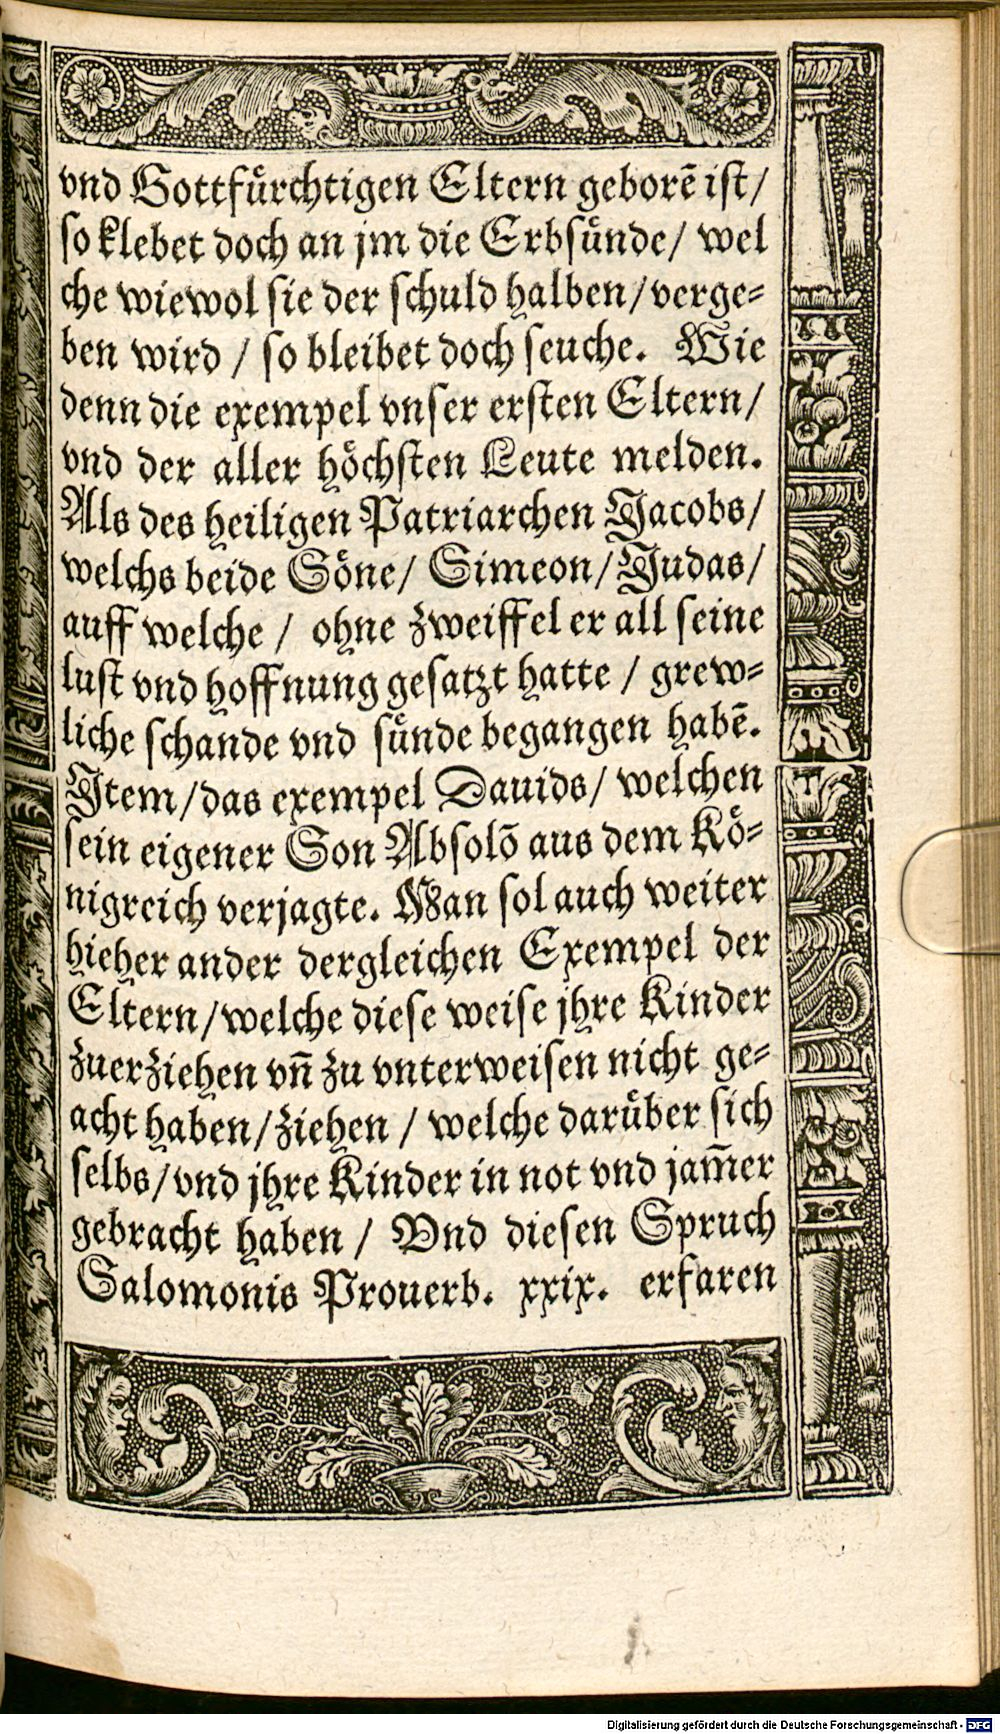 vnd Gottfuͤrchtigen Eltern geborẽ ist/
so klebet doch an jm die Erbsuͤnde/ wel
che wiewol sie der schuld halben/verge⸗
ben wird / so bleibet doch seuche. Wie
denn die exempel vnser ersten Eltern/
vnd der aller hoͤchsten Leute melden.
Als des heiligen Patriarchen Jacobs/
welchs beide Soͤne/ Simeon/Judas/
auff welche / ohne zweiffel er all seine
lust vnd hoffnung gesatzt hatte / grew⸗
liche schande vnd suͤnde begangen habẽ.
Jtem/das exempel Dauids/ welchen
sein eigener Son Absolõ aus dem Koͤ⸗
nigreich verjagte. Man sol auch weiter
hieher ander dergleichen Exempel der
Eltern/welche diese weise jhre Kinder
zuerziehen vñ zu vnterweisen nicht ge⸗
acht haben/ziehen / welche daruͤber sich
selbs/vnd jhre Kinder in not vnd jam̃er
gebracht haben / Vnd diesen Spruch
Salomonis Prouerb. xxix. erfaren
Digitalisierung gefördert durch die Deutsche Forschungsgemeinschaft - DFG